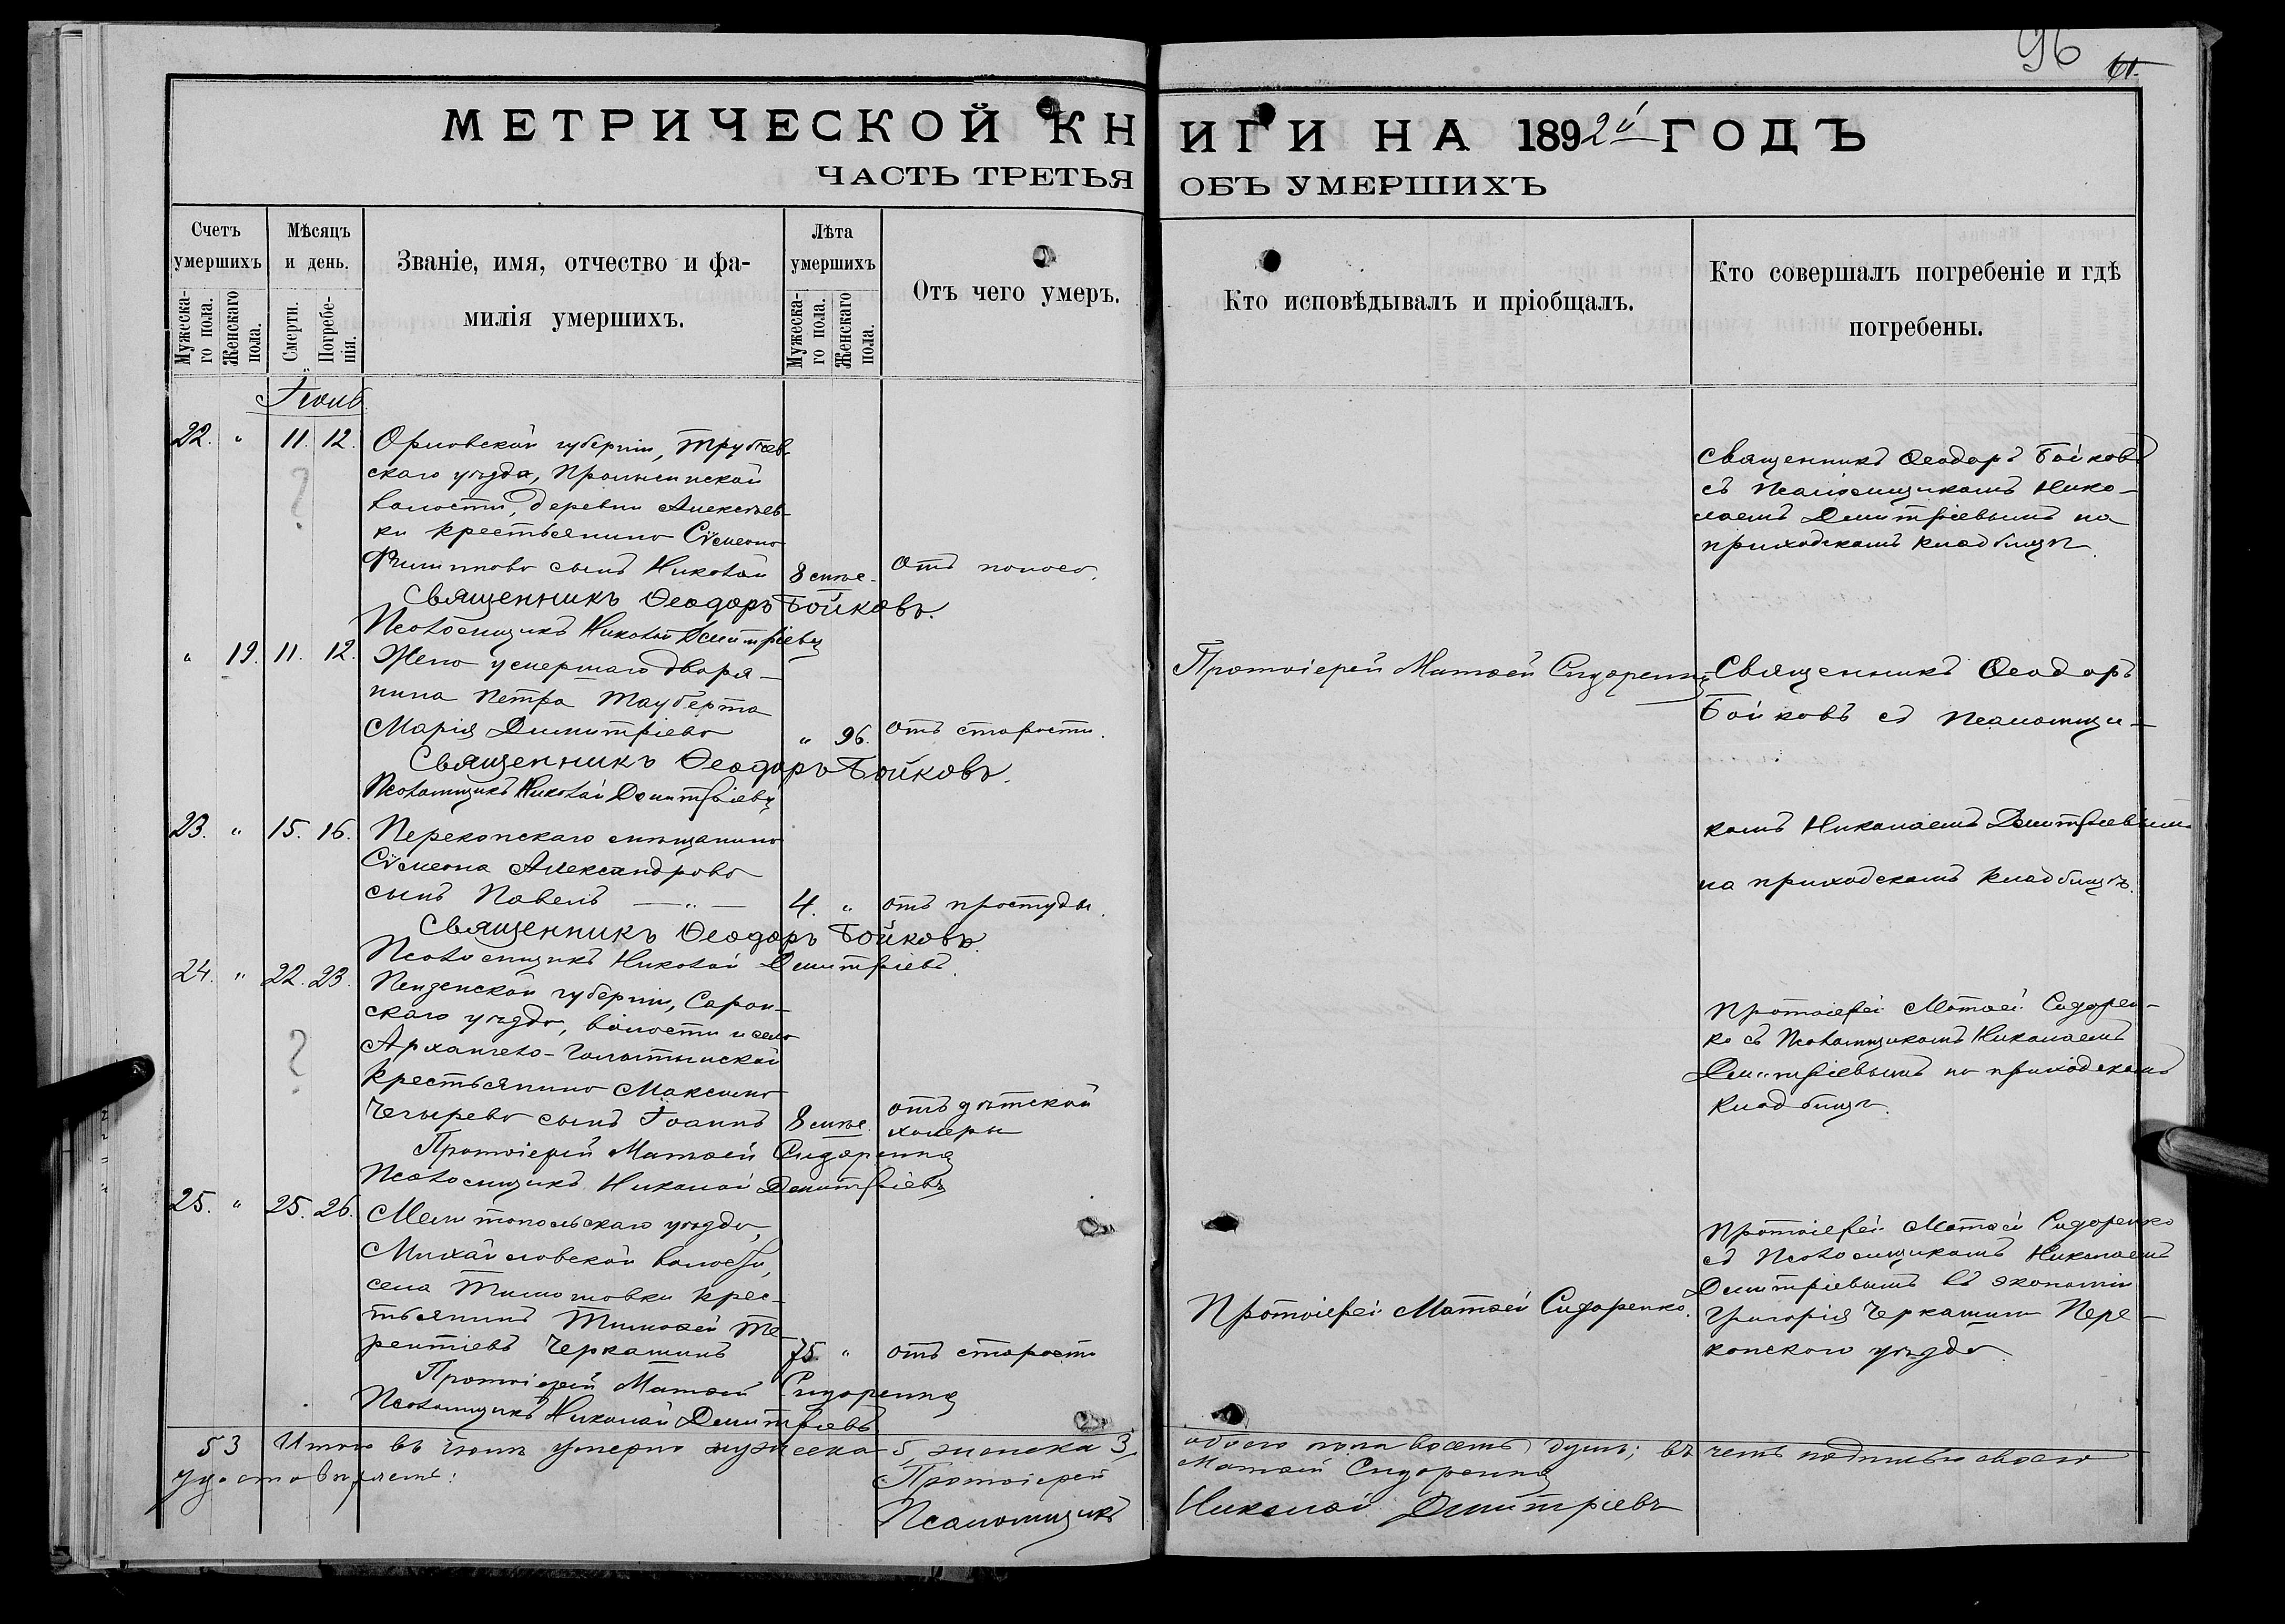 96 61.
МЕТРИЧЕСКОЙ КНИГИ НА 1892й ГОДЪ
ЧАСТЬ ТРЕТЬЯ ОБЪ УМЕРШИХЪ
Счетъ умершихъ
Мужескаго пола.
Женскаго пола.
Мѣсяцъ и день.
Смерти.
Погребенія.
Званіе, имя, отчество и фамилія умершихъ.
Лѣта умершихъ
Мужескаго пола.
Женскаго пола.
Отъ чего умеръ.
Кто исповѣдывалъ и пріобщалъ.
Кто совершалъ погребеніе и гдѣ погребены.
Іюнь
22. " 11. 12. Орловской губерніи, Трубчев-
скаго уѣзда,
волости, деревни Алексѣев-
ки крестьянина Сѵмеона
Филиппова сынъ Николай 8 мѣс. Отъ поноса.
Священникъ Ѳеодоръ Бойковъ.
Псаломщикъ Николай Димитріевъ
Священникъ Ѳеодоръ Бойковъ
съ Псаломщикомъ Нико-
лаемъ Димитріевымъ на
приходскомъ кладбищѣ.
" 19. 11. 12. Жена умершаго дворя-
нина Петра Тауберта
Марія Димитріева " 96. отъ старости.
Священникъ Ѳеодоръ Бойковъ.
Псаломщикъ Николай Димитріевъ
Протоіерей Матѳей Сидоренко
Священникъ Ѳеодоръ
Бойковъ съ Псаломщи-
23. " 15. 16. Перекопскаго мѣщанина
Сѵмеона Александрова
сынъ Павелъ — " — 4. " отъ простуды.
Священникъ Ѳеодоръ Бойковъ.
Псаломщикъ Николай Димитріевъ.
комъ Николаемъ Димитріевымъ
на приходскомъ кладбищѣ.
24. " 22. 23. Пензенской губерніи, Саран-
скаго уѣзда, волости и села
Архангело-Голицынской
крестьянина Максима
сынъ Іоаннъ 8 мѣс. отъ дѣтской
холеры
Протоіерей Матѳей Сидоренко
Псаломщикъ Николай Димитріевъ
Протоіерей Матѳей Сидорен-
ко съ Псаломщикомъ Николаемъ
Димитріевымъ на приходскомъ
кладбищѣ.
25. " 25. 26. Мелитопольскаго уѣзда,
Михайловской волости,
села Тимошовки крес-
тьянинъ Тимоѳей Те-
рентіевъ Черкашинъ 75 " отъ старости
Протоіерей Матѳей Сидоренко
Псаломщикъ Николай Димитріевъ
Протоіерей Матѳей Сидоренко.
Протоіерей Матѳей Сидоренко
съ Псаломщикомъ Николаемъ
Димитріевымъ въ экономіи
Григорія Черкашина Пере-
копскаго уѣзда.
5 3 Итого въ іюнѣ умерло мужеска 5, женска 3, обоего пола восемь душъ; въ чемъ подписью своею
удостовѣряемъ:
Протоіерей Матѳей Сидоренко
Псаломщикъ Николай Димитріевъ